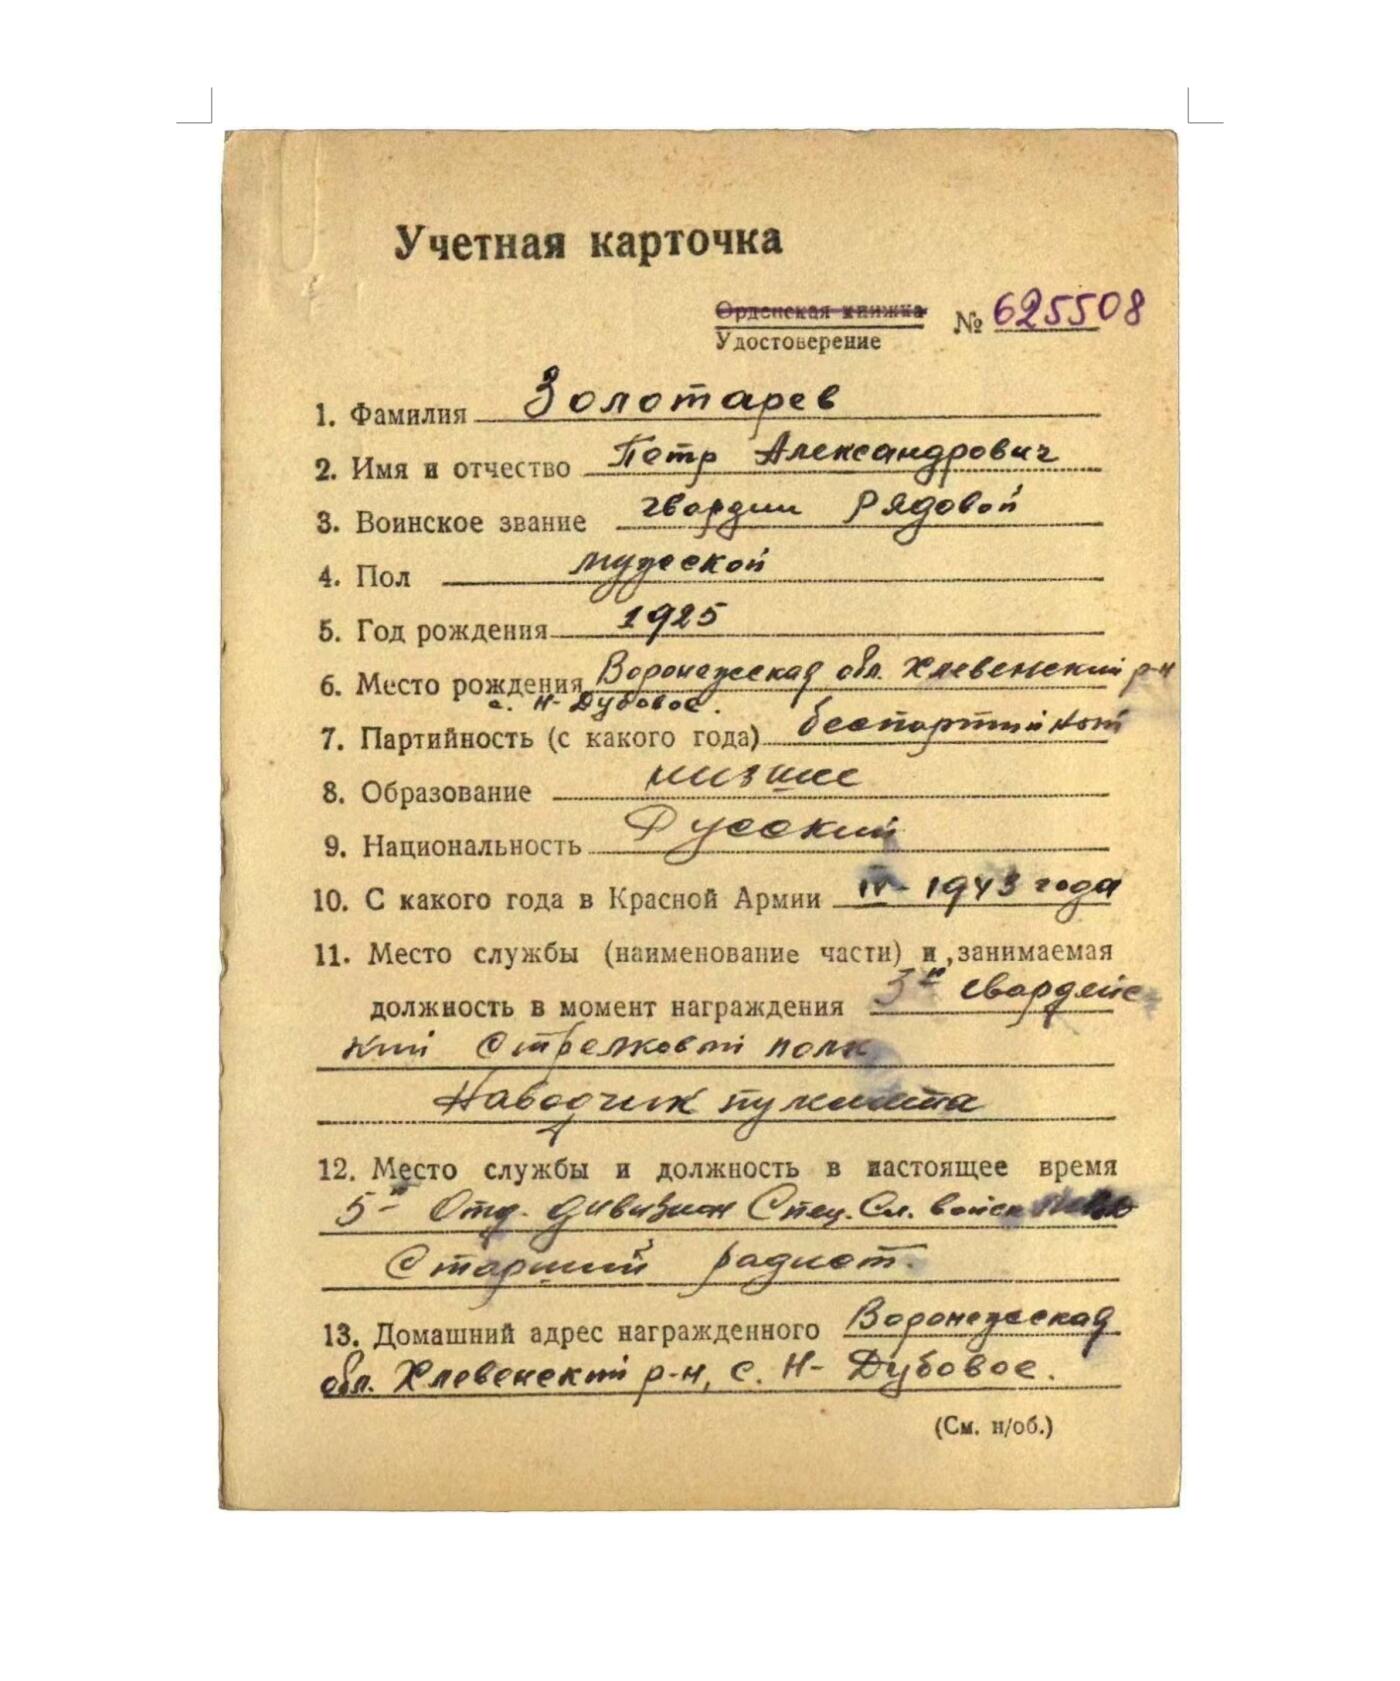 Учетная карточка
Орденская книжка
Удостоверение № 625508
1. Фамилия Золотарев
2. Имя и отчество Петр Александрович
3. Воинское звание гвардии Рядовой
4. Пол мужской
5. Год рождения 1925
6. Место рождения Воронежская обл. Хлевенский р-н
с. Н-Дубовое.
7. Партийность (с какого года) беспартийный
8. Образование низшее
9. Национальность Русский
10. С какого года в Красной Армии IV- 1943 года
11. Место службы (наименование части) и занимаемая
должность в момент награждения 3й гвардейс-
кий Стрелковый полк
Наводчик пулемета
12. Место службы и должность в настоящее время
5й Отд. дивизион Спец. Сл. войск
Старший радист.
13. Домашний адрес награжденного Воронежская
обл. Хлевенский р-н, с. Н- Дубовое.
(См. н/об.)